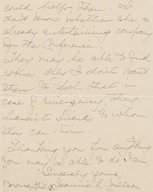 could help them. I
don't know whether she is
already entertaining company
in the
They may be able to find
other places. I don't want
them to feel that in
case of emergency, they
haven't friends to whom
they can turn.
Thanking you for anything
you may be able to do I am
Sincerely yours,